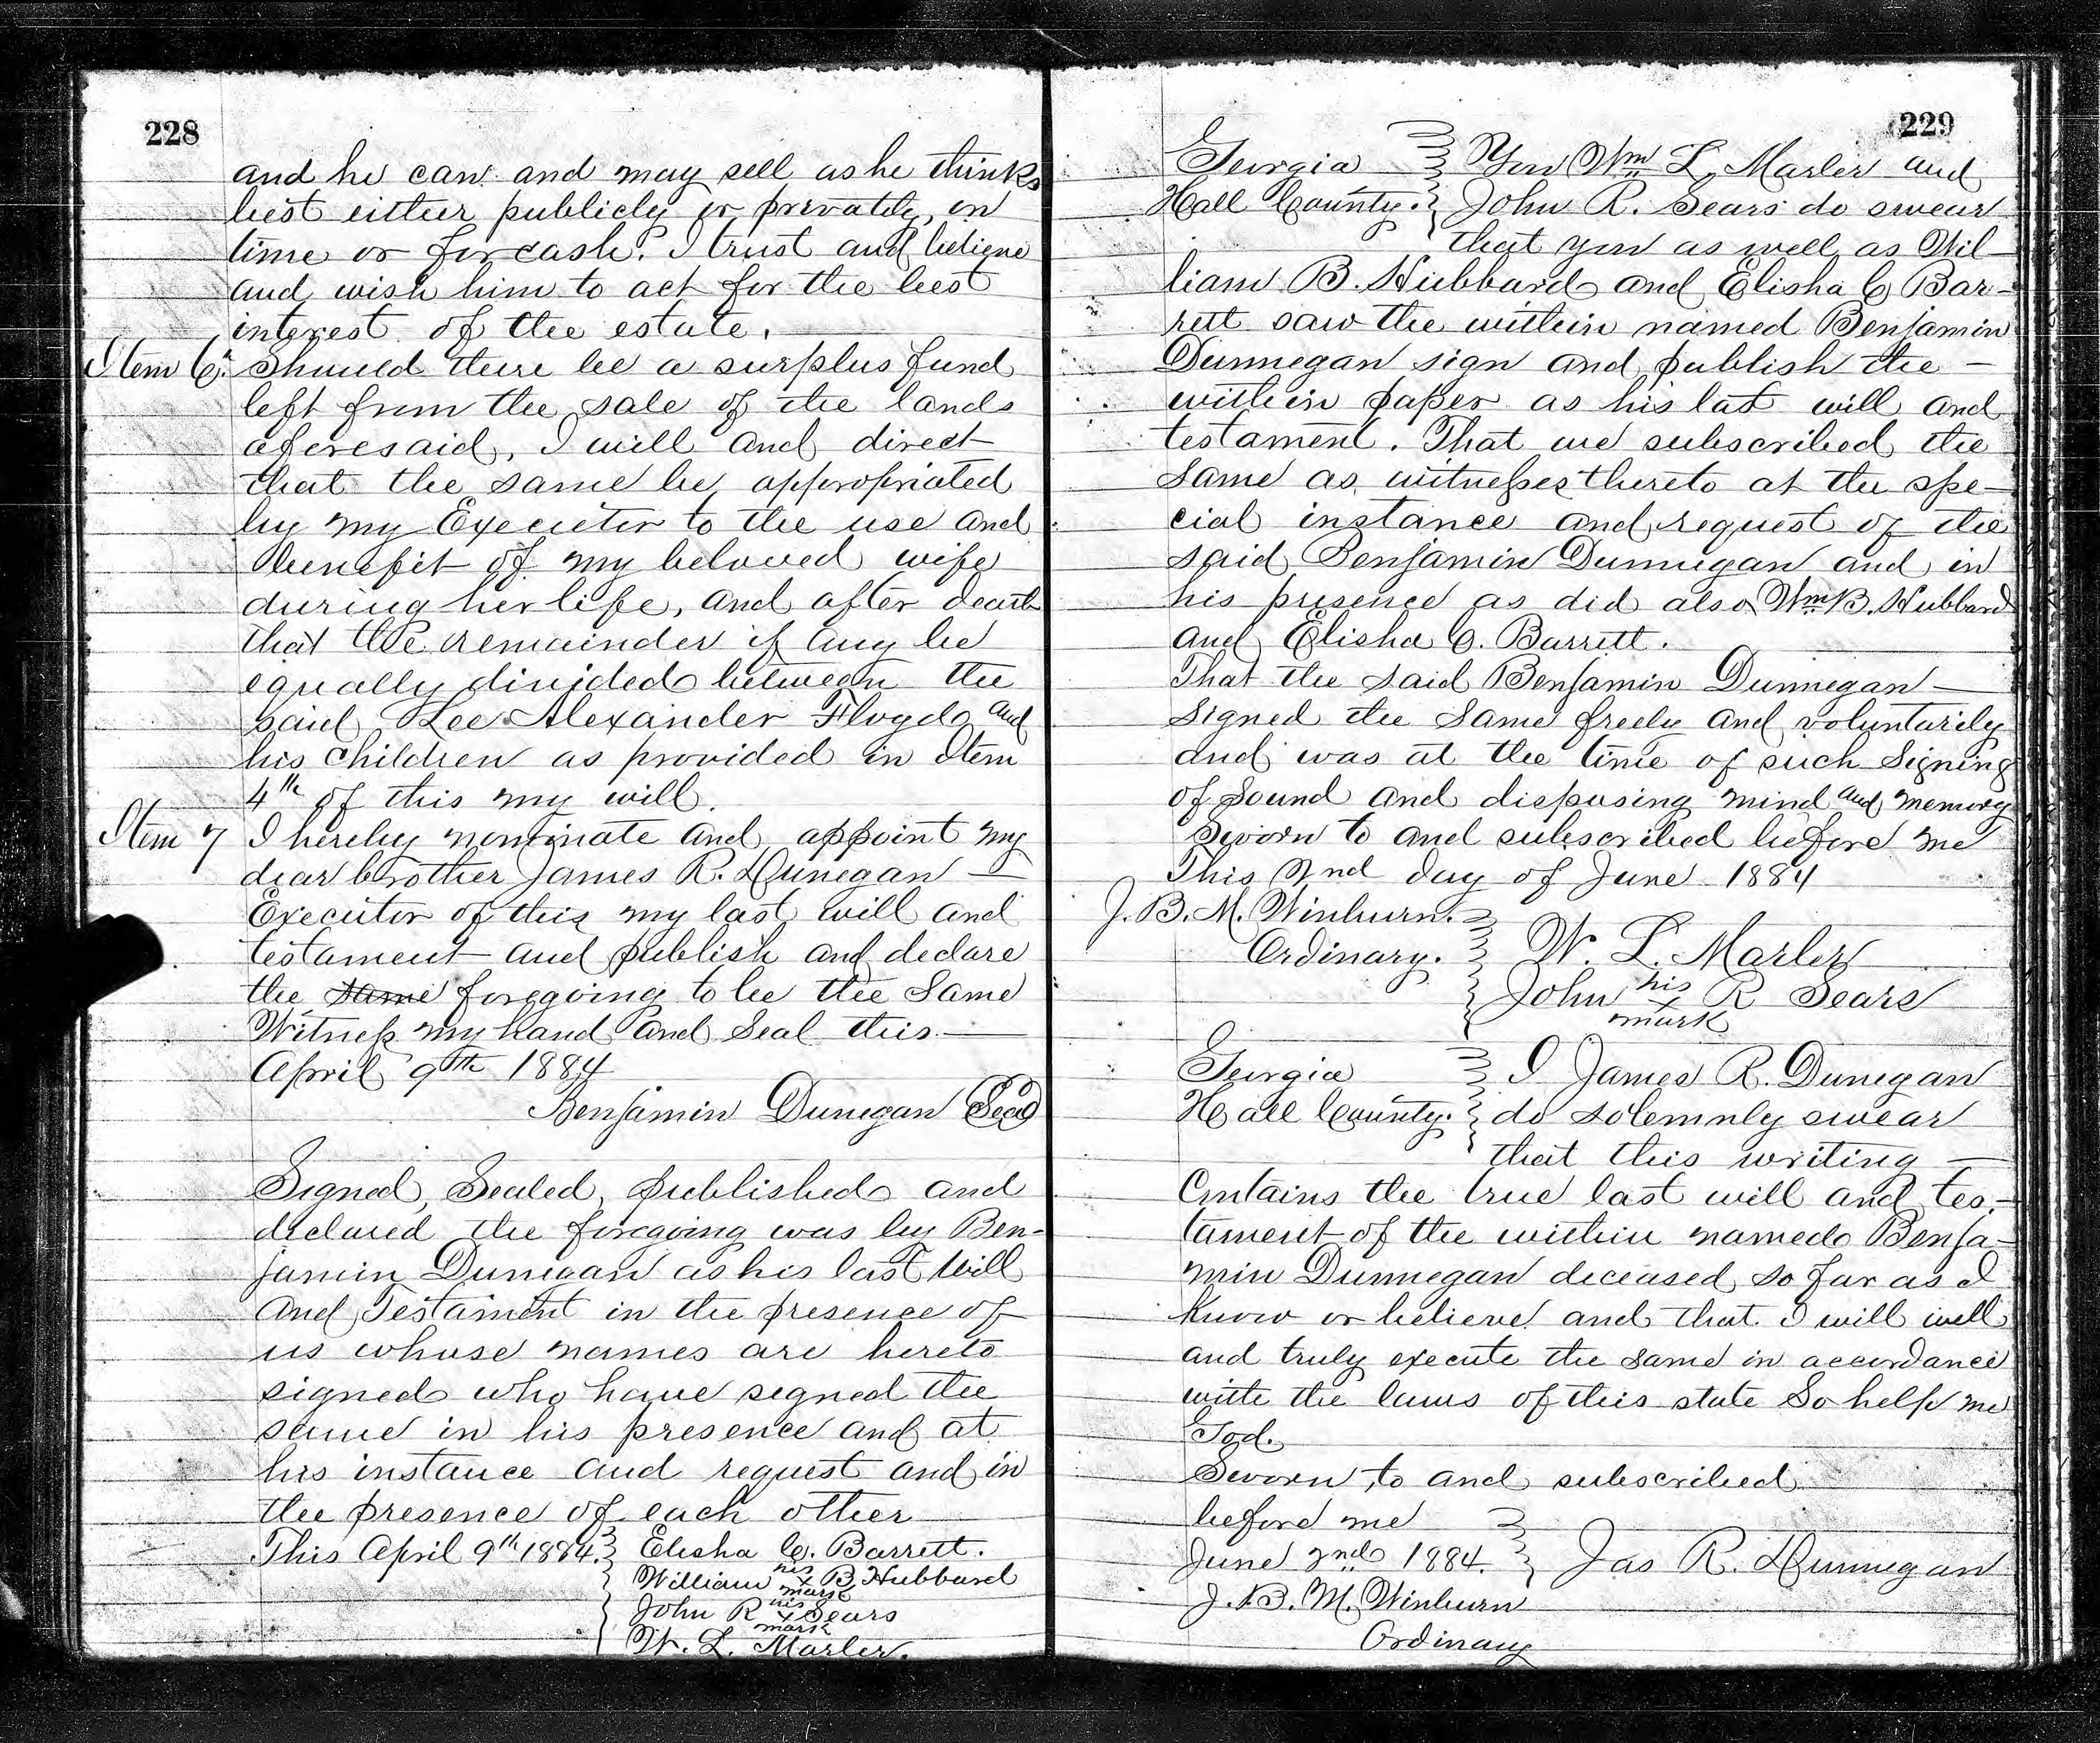 228
and he can and may sell as he thinks
best either publicly or privately, on
time or for cash. I trust and believe
and wish him to act for the best
interest of the estate.
Item 6. Should there be a surplus fund
left from the sale of the lands
aforesaid, I will and direct
that the same be appropriated
by my Executor to the use and
benefit of my beloved wife
during her life, and after death
that the remainder if any be
equally divided between the
said Lee Alexander Floyd and
his children as provided in Item
4th of this my will.
Item 7 I hereby nominate and appoint my
dear brother James R. Dunegan
Executor of this my last will and
testament and publish and declare
the same foregoing to be the same
Witness my hand and Seal this
April 9th 1884
Benjamin Dunegan Seal
Signed, Sealed, published and
declared the foregoing was by Ben-
jamin Dunegan as his last Will
and Testament in the presence of
us whose names are hereto
signed who have signed the
same in his presence and at
his instance and request and in
the presence of each other
This April 9th 1884. Elisha C. Barrett.
William his x mark B. Hubbard
John R his x mark Sears
W. L. Marler.
229
Georgia You Wm L. Marler and
Hall County. John R. Sears do swear
that you as well as Wil-
liam B. Hubbard and Elisha C Bar-
rett saw the within named Benjamin
Dunnegan sign and publish the
within paper as his last will and
testament. That we subscribed the
same as witnesses thereto at the spe-
cial instance and request of the
said Benjamin Dunnegan and in
his presence as did also Wm B. Hubbard
and Elisha C. Barrett.
That the said Benjamin Dunnegan
signed the same freely and voluntarily
and was at the time of such Signing
of Sound and disposing mind and memory
Sworn to and subscribed before me
This 2nd day of June 1884
J. B. M. Winburn.
Ordinary. W. L. Marler
John his x mark R Sears
Georgia I James R. Dunegan
Hall County. do solemnly swear
that this writing
Contains the true last will and tes-
tament of the within named Benja-
min Dunnegan deceased so far as I
know or believe and that I will well
and truly execute the same in accordance
with the laws of this state So help me
God.
Sworn to and subscribed
before me
June 2nd 1884. Jas R. Dunnegan
J. B. M. Winburn
Ordinary